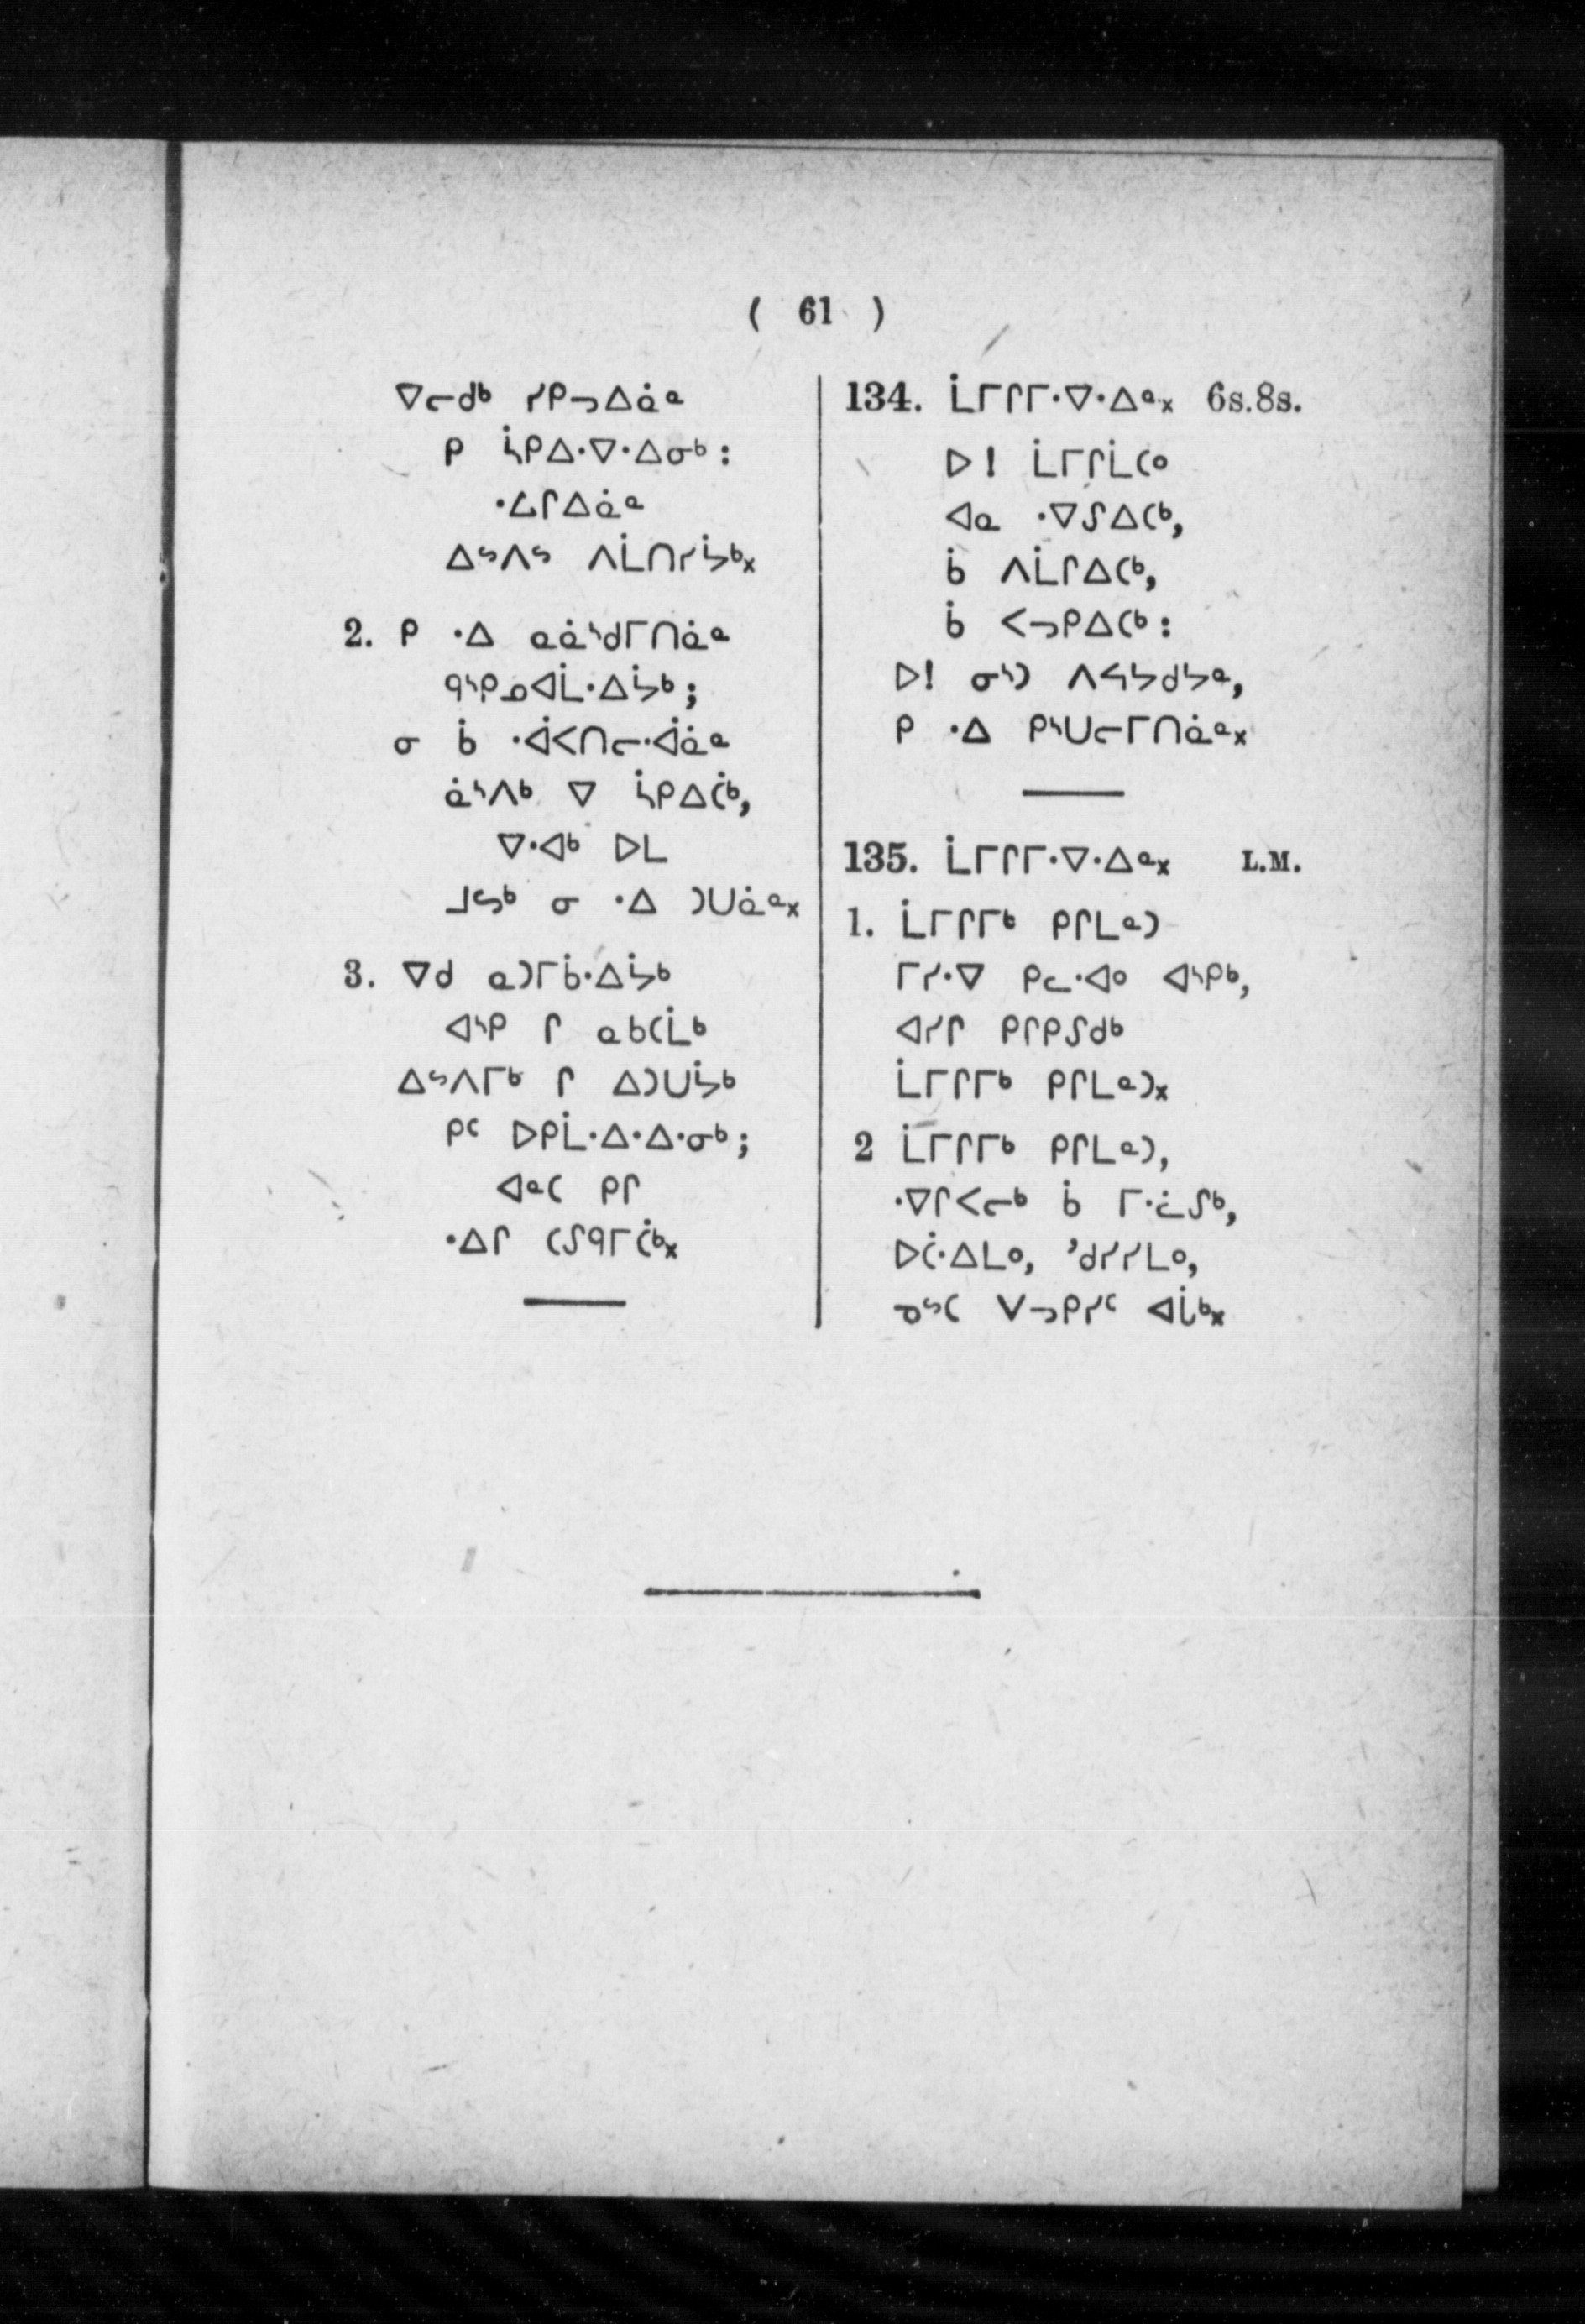 ( 61 )
ᐁᓕᑯᒃ ᓯᑭᓗᐃᓈᓐ
ᑭ ᓵᑭᐃᐧᐁᐧᐃᓂᒃ :
ᐧᐎᒋᐃᓈᓐ
ᐃᔅᐱᔅ ᐱᒫᑎᓯᔮᒃ᙮
2. ᑭ ᐧᐃ ᓇᓈᔅᑯᒥᑎᓈᓐ
ᑫᔅᑭᓄᐊᒫᐧᐃᔮᒃ ;
ᓂ ᑳ ᐧᐋᐸᑎᓕᐧᐋᓈᓐ
ᓈᔅᐱᒃ ᐁ ᓵᑭᐃᑖᒃ,
ᐁᐧᐊᒃ ᐅᒪ
ᒧᔕᒃ ᓂ ᐧᐃ ᑐᑌᓈᓐ᙮
3. ᐁᑯ ᓇᑐᒥᑳᐧᐃᔮᒃ
ᐊᔅᑭ ᒋ ᓇᑲᑕᒫᒃ
ᐃᔅᐱᒥᒃ ᒋ ᐃᑐᑌᔮᒃ
ᑭᑦ ᐅᑭᒫᐧᐃᐧᐃᐧᓂᒃ ;
ᐊᓐᑕ ᑭᒋ
ᐧᐃᒋ ᑕᔑᑫᒥᑖᒃ᙮
134. ᒫᒥᒋᒥᐧᐁᐧᐃᓐ᙮ 6s.8s.
ᐅ ! ᒫᒥᒋᒫᑕᐤ
ᐊᓇ ᐧᐁᔑᐃᑕᒃ,
ᑳ ᐱᒫᒋᐃᑕᒃ,
ᑳ ᐸᓗᑭᐃᑕᒃ :
ᐅ! ᓂᔅᑐ ᐱᓭᔭᑯᔭᓐ,
ᑭ ᐧᐃ ᑭᔅᑌᓕᒥᑎᓈᓐ᙮
135. ᒫᒥᒋᒥᐧᐁᐧᐃᓐ᙮ L.M.
1. ᒫᒥᒋᒥᒃ ᑭᒋᒪᓐᑐ
ᒥᓯᐧᐁ ᑭᓚᐧᐊᐤ ᐊᔅᑭᒃ,
ᐊᓯᒋ ᑭᒋᑭᔑᑯᒃ
ᒫᒥᒋᒥᒃ ᑭᒋᒪᓐᑐ᙮
2 ᒫᒥᒋᒥᒃ ᑭᒋᒪᓐᑐ,
ᐧᐁᒋᐸᓕᒃ ᑳ ᒥᐧᓛᔑᒃ,
ᐅᑖᐧᐃᒪᐤ, ’ᑯᓯᓯᒪᐤ,
ᓀᔅᑕ ᐯᓗᑭᓯᑦ ᐊᒑᒃ᙮